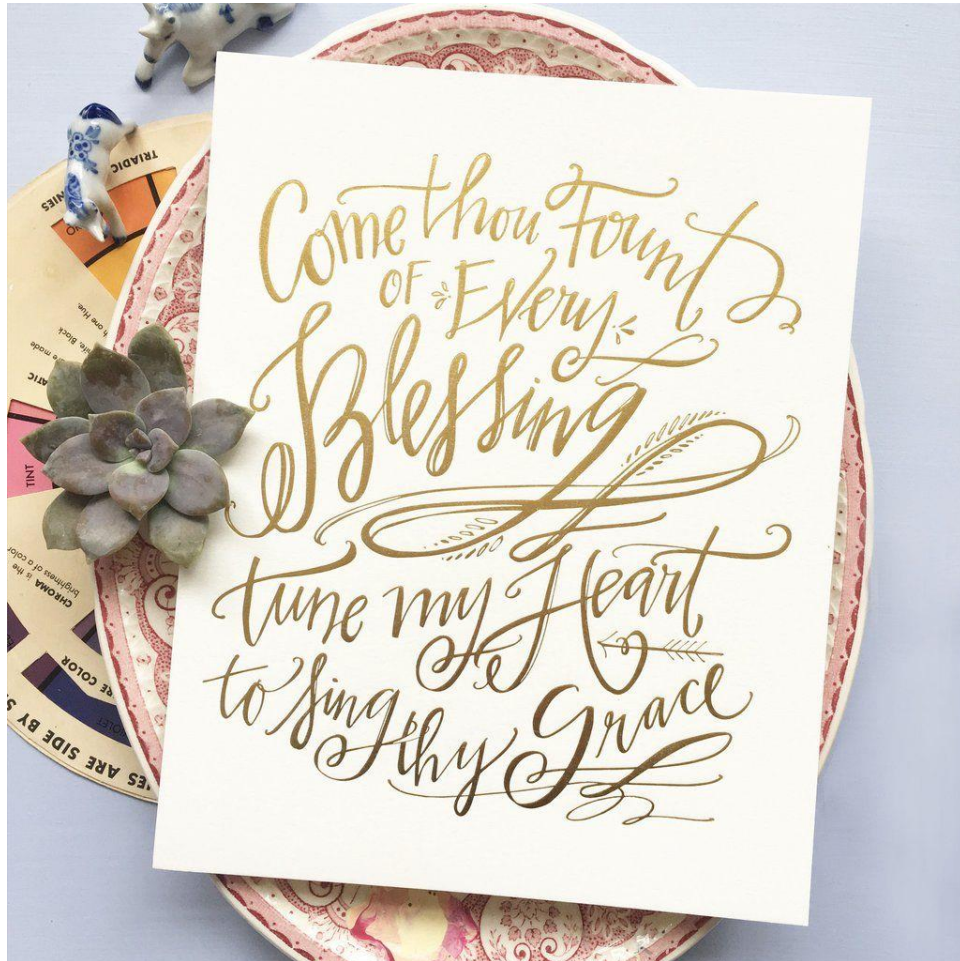 Come thou Fount
OF Every
Blessing
tune my Heart
to sing thy Grace
TRIADIC
TINT
CHROMA is the
brightness of a color